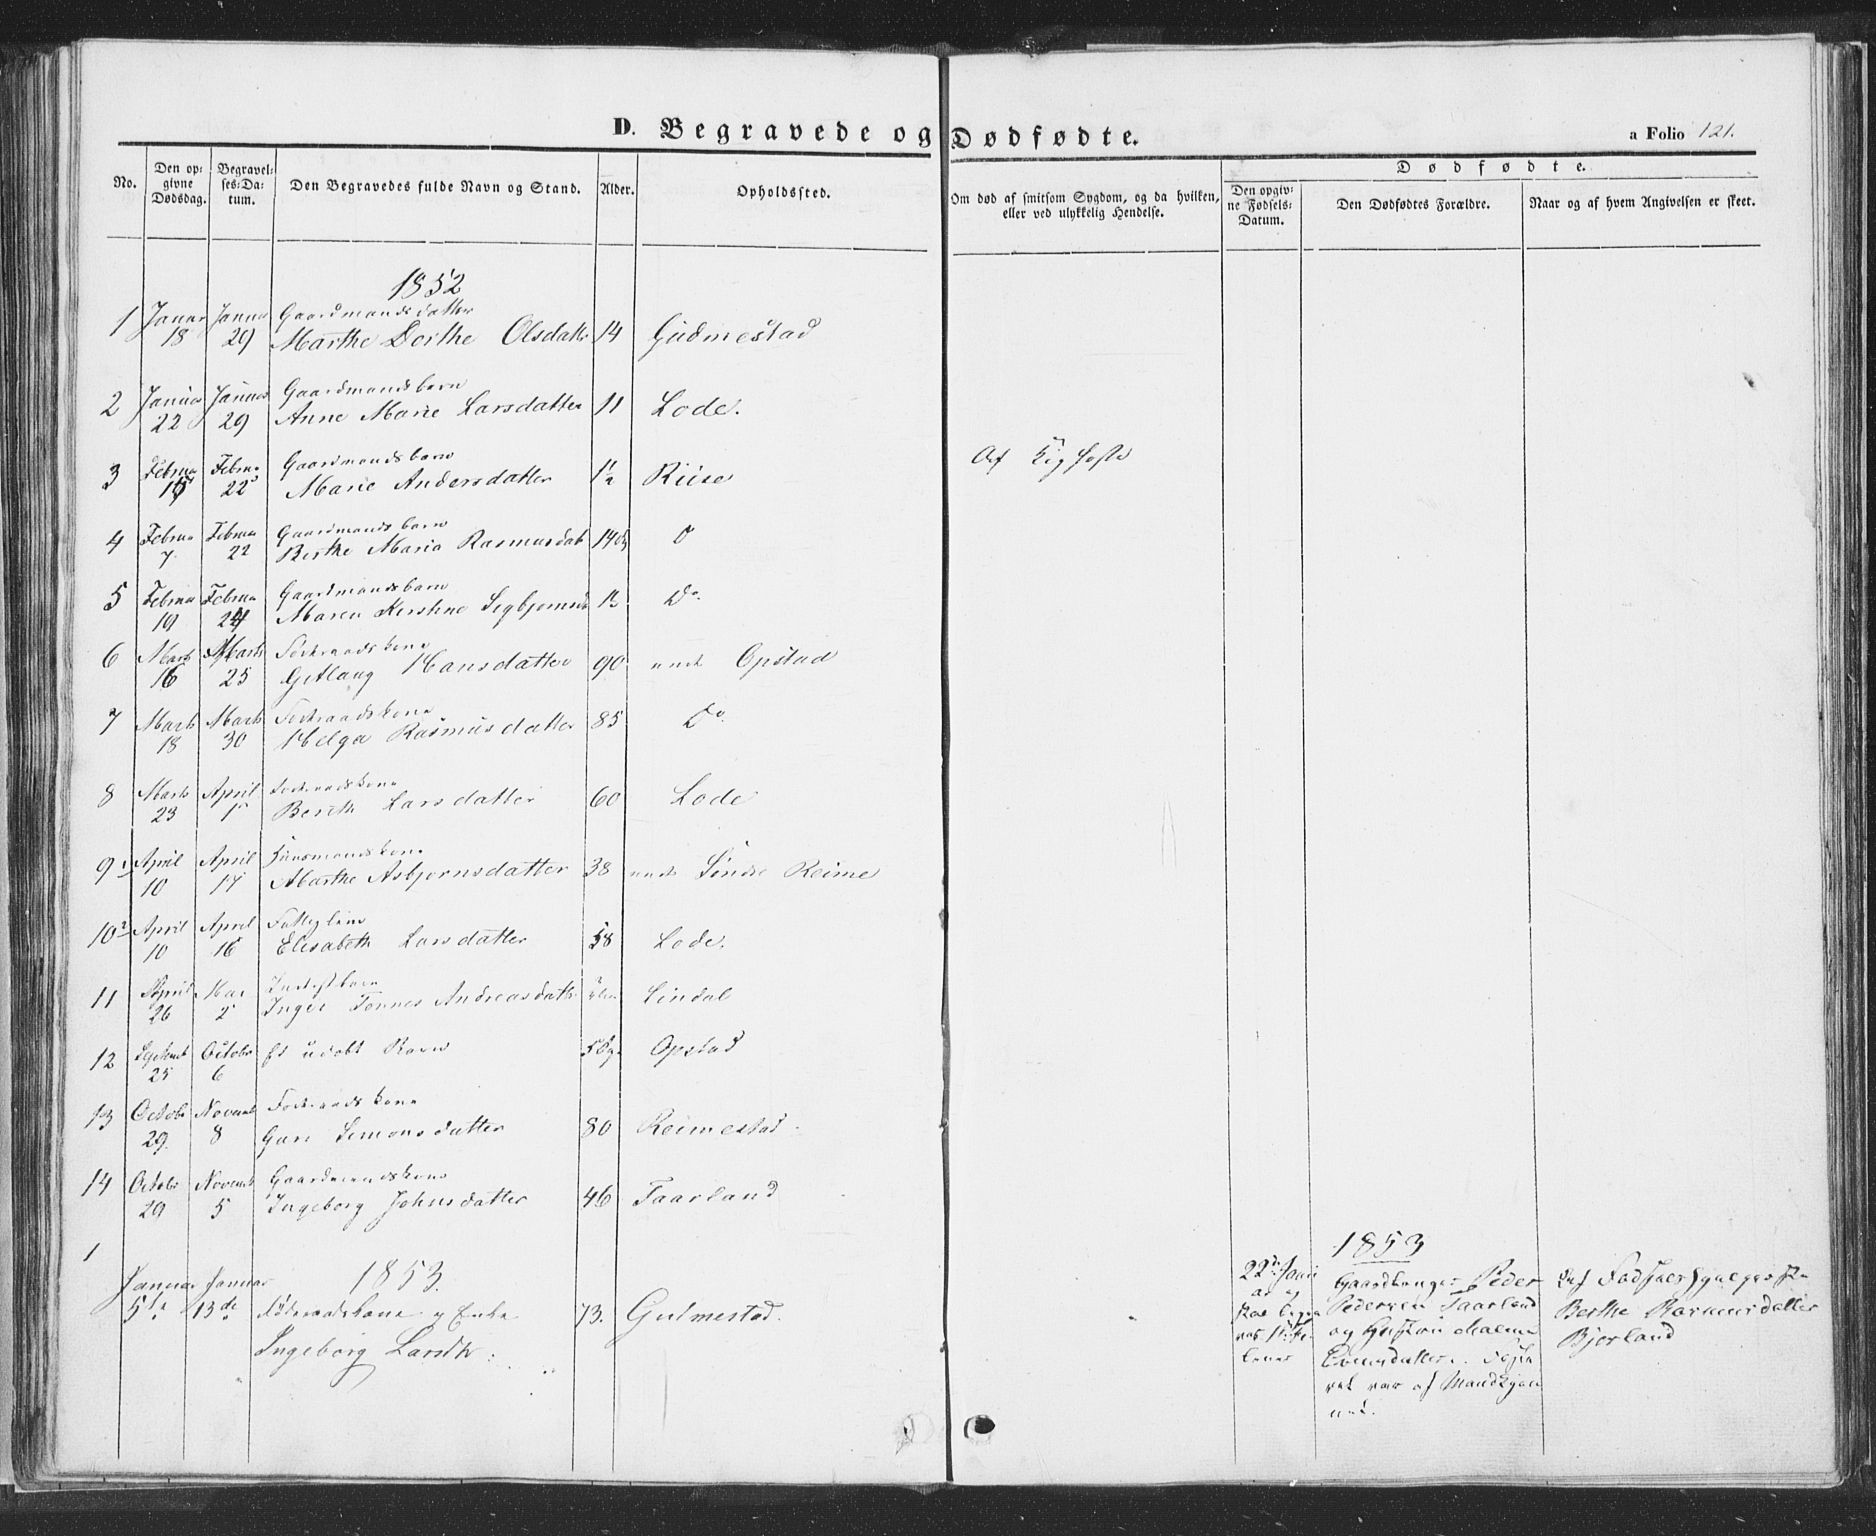 D. Begravede og Dødfødte.
a Folio 121.
No.
Den opgivne Dødsdag.
Begravelses-Datum.
Den Begravedes fulde Navn og Stand.
Alder.
Opholdssted.
Om død af smitsom Sygdom, og da hvilken, eller ved ulykkelig Hendelse.
Dødfødte.
Den opgivne Fødsels-Datum.
Den Dødfødtes Forældre.
Naar og af hvem Angivelsen er skeet.
1852
1 Januar 18 Januar 29 Gaardmandsdatter
Marthe Dorthe Olsdatter 14 Gudmestad
2 Januar 22 Januar 29 Gaardmandsbarn
Anne Marie Larsdatter 11 Lode.
3 Februa 22 Gaardmandsbarn
Marie Andersdatter 1½ Riise Af Kighoste
4 Februa 7 Februa 22 Gaardmandsbarn
Berthe Maria Rasmusdat 14 dg Do
5 Februa 19 Februa 24 Gaardmandsbarn
Maren Kirstine ½ Do
6 Marts 16 Marts 25 Føderaadskone
Gitlaug Hansdatter 90 Opstad
7 Marts 18 Marts 30 Føderaadskone
Helga Rasmusdatter 85 Do
8 Marts 23 April 1 Føderaadskone
Berith Larsdatter 60 Lode
9 April 10 April 17 Huusmandskone
Marthe Asbjørnsdatter 38 Søndre Reime
10 April 10 April 16 Fattiglem
Elisabeth Larsdatter 58 Lode.
11 April 26 Mai 2
Inger Tonnes Andreasdatter Lindal
12 Septemb 25 October 6 Et udøbt Barn 5 Dge Opstad
13 October 29 Novemb 8 Føderaadskone
Guri Simonsdatter 80 Reimestad
14 Octobr 29 Novemb 5 Gaardmandskone
Ingeborg Johnsdatter 46 Taarland
1
1853.
Januar 5te Januar 13de Føderaadskone og Enke 73. Gudmestad.
Ingeborg Larsdtr:
1853
22de Gaardbruger Peder
Pedersen Taarland
og Hustru Malene
Evensdatter.
var af Mandkjøn
net.
Af
Berthe Rasmusdatter
Bjorland